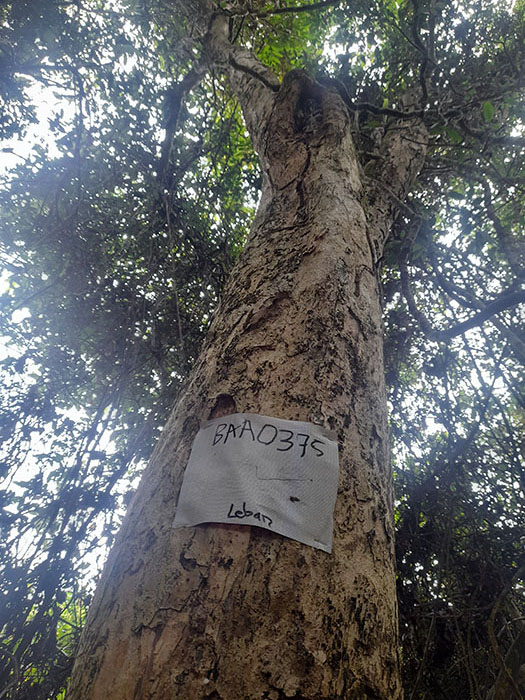 BAA0375
Leban